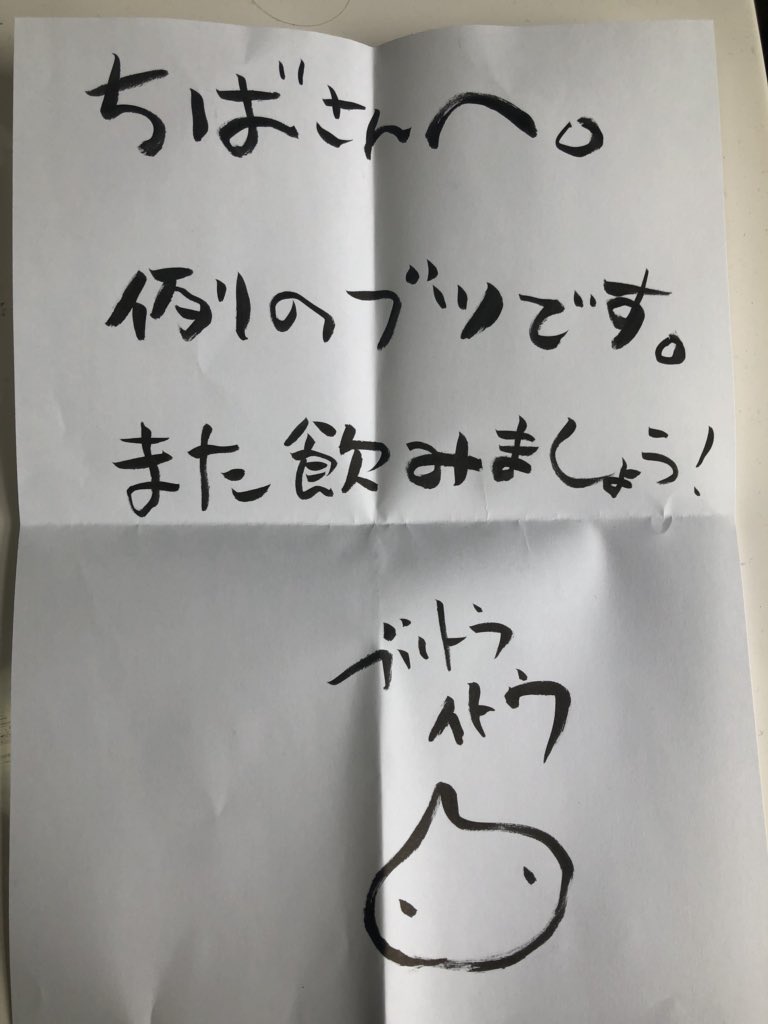 ちばさんへ。
例のブツです。
また飲みましょう!
ブットラ
イトウ